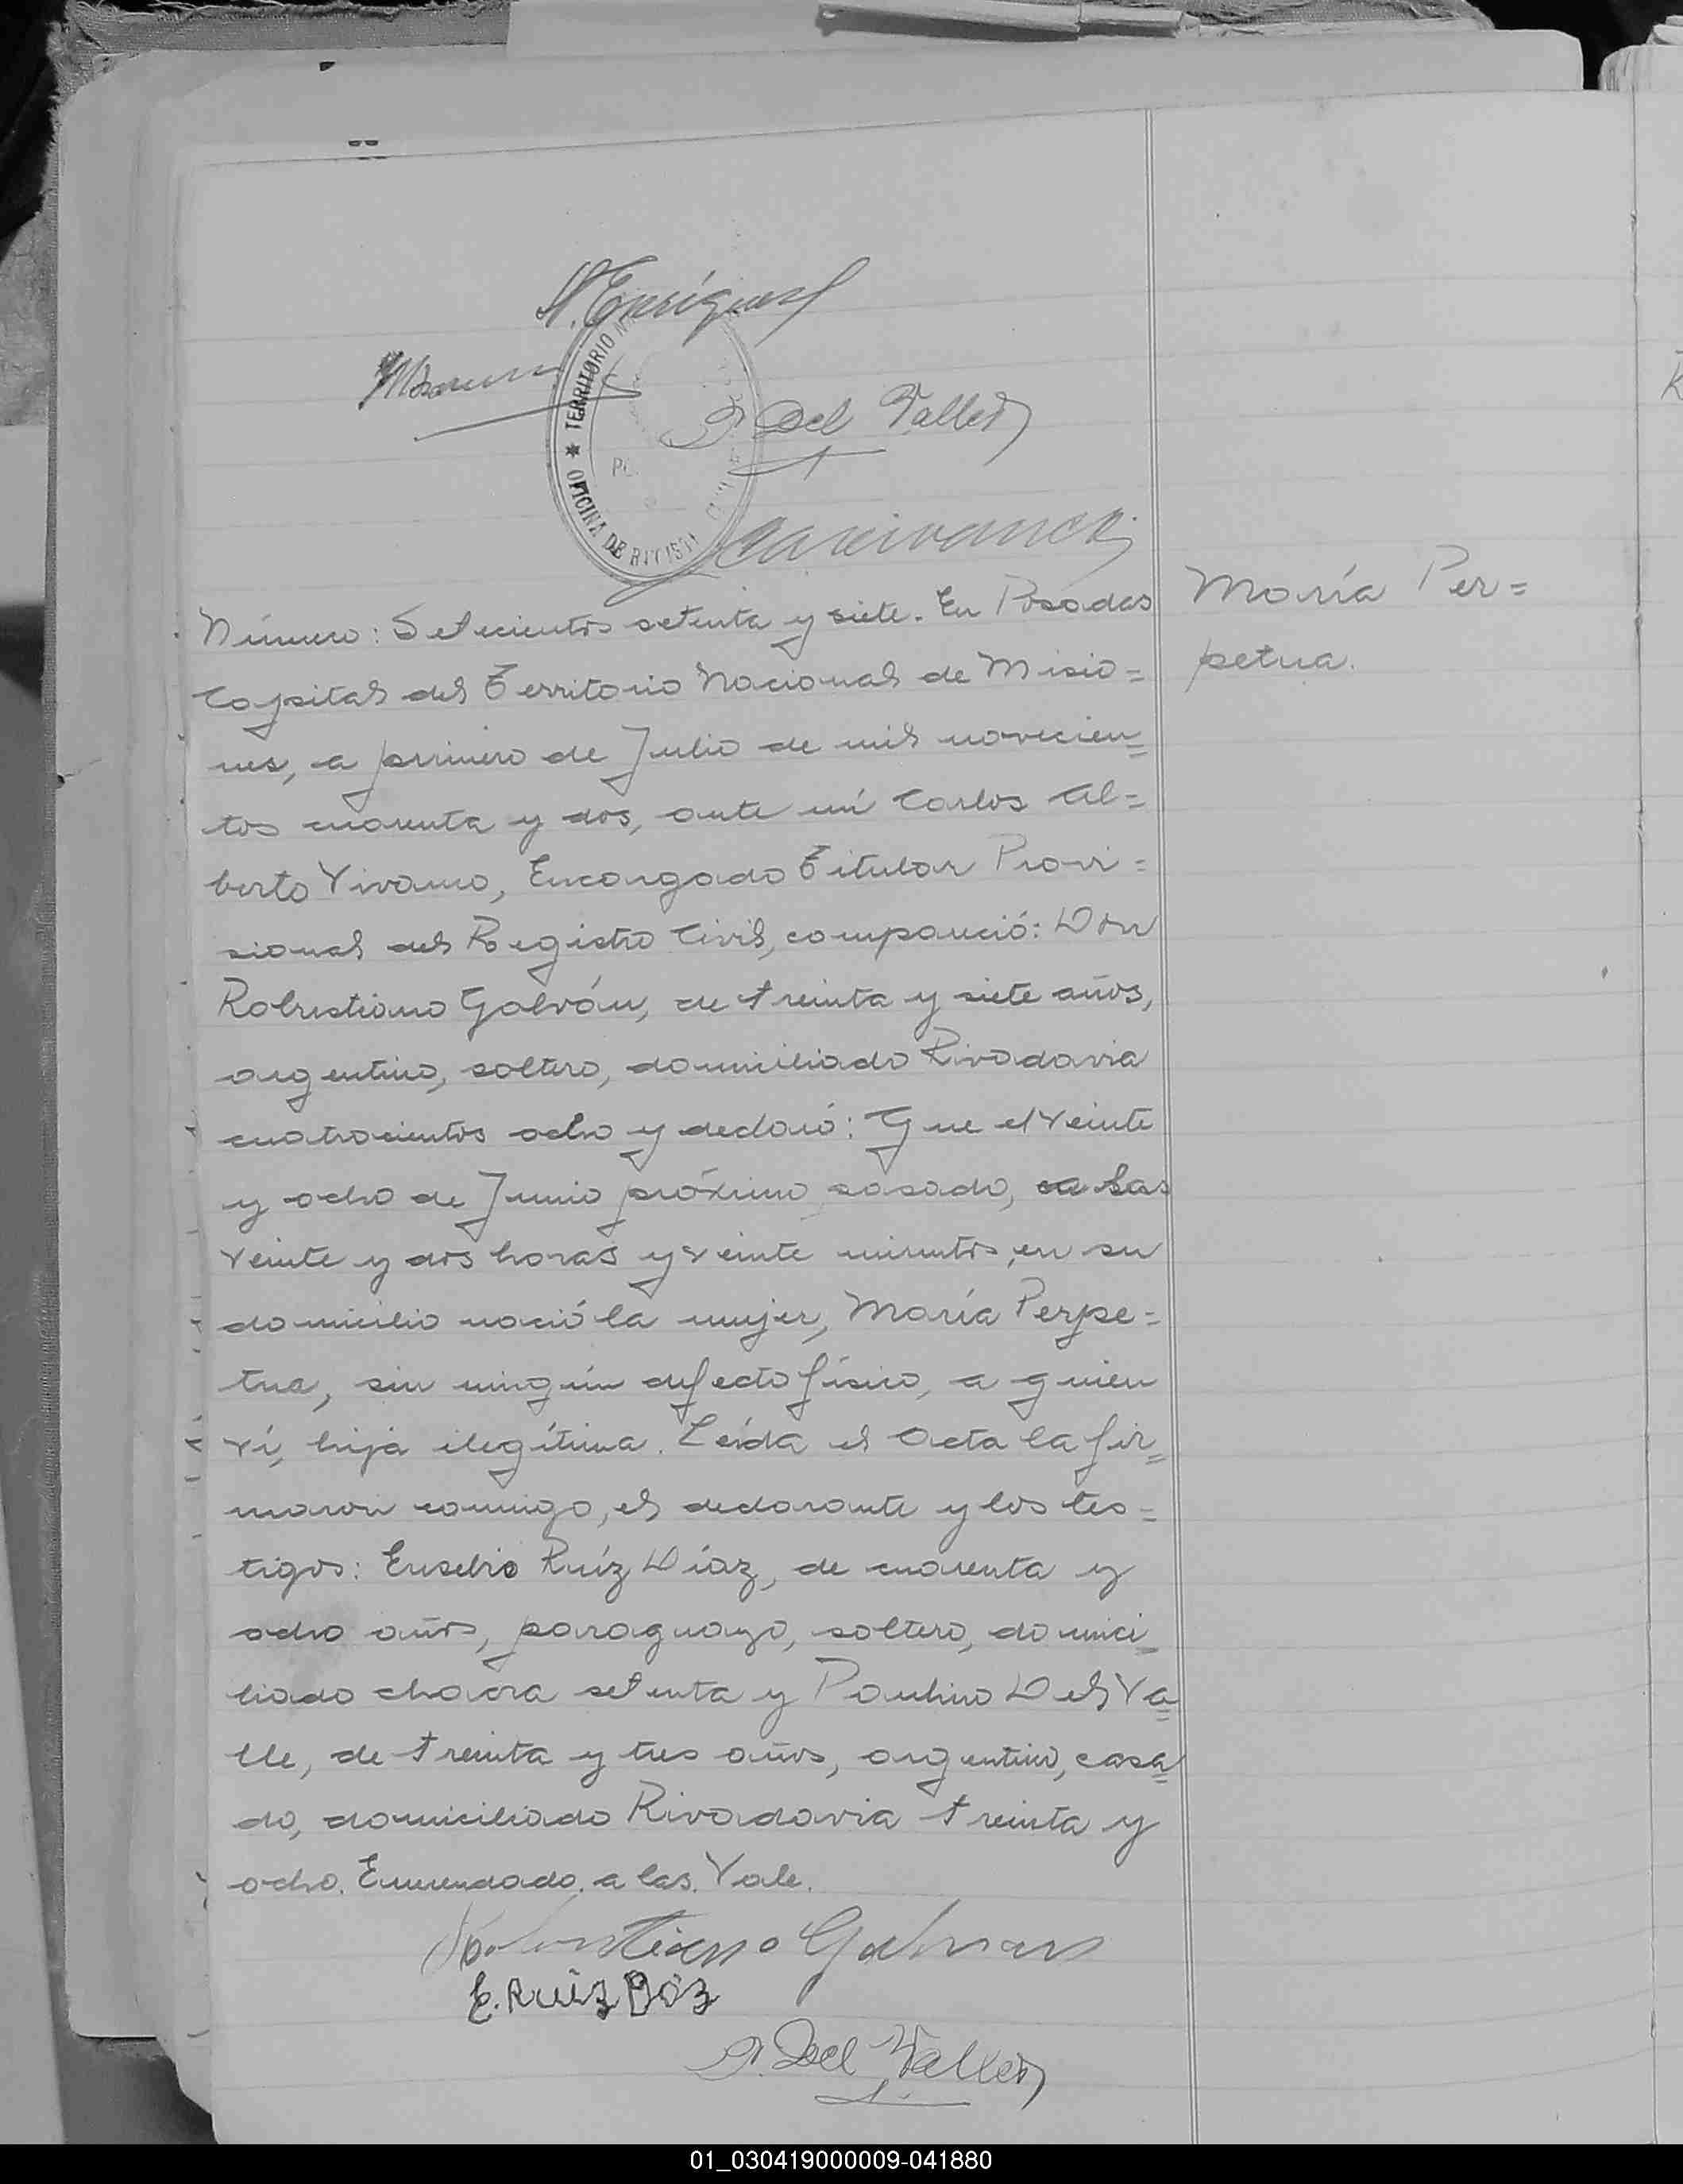 TERRITORIO
OFICINA DE
P. Del Valle
Número: Setecientos setenta y siete. En Posadas
Capital del Territorio Nacional de Misio=
nes, a primero de Julio de mil novecien=
tos cuarenta y dos, ante mí Carlos Al=
berto Vivanco, Encargado Titular Provi=
sional del Registro Civil, compareció: Don
Galván, de treinta y siete años,
argentino, soltero, domiciliado Rivadavia
cuatrocientos ocho y declaró: Que el veinte
y ocho de Junio próximo pasado, a las
veinte y dos horas y veinte minutos, en su
domicilio nació la mujer, María Perpe=
tua, sin ningún defecto físico, a quien
ví, hija ilegítima. Leída el Acta la fir=
maron conmigo, el declarante y los tes=
tigos: Eusebio Ruíz Díaz, de cuarenta y
ocho años, paraguayo, soltero, domici=
liado chacra setenta y Paulino Del Va=
lle, de treinta y tres años, argentino, casa=
do, domiciliado Rivadavia treinta y
ocho. Enmendado. a las. Vale.
Galvan
E. Ruiz
P. Del Valle
María Per=
petua.
01_030419000009-041880